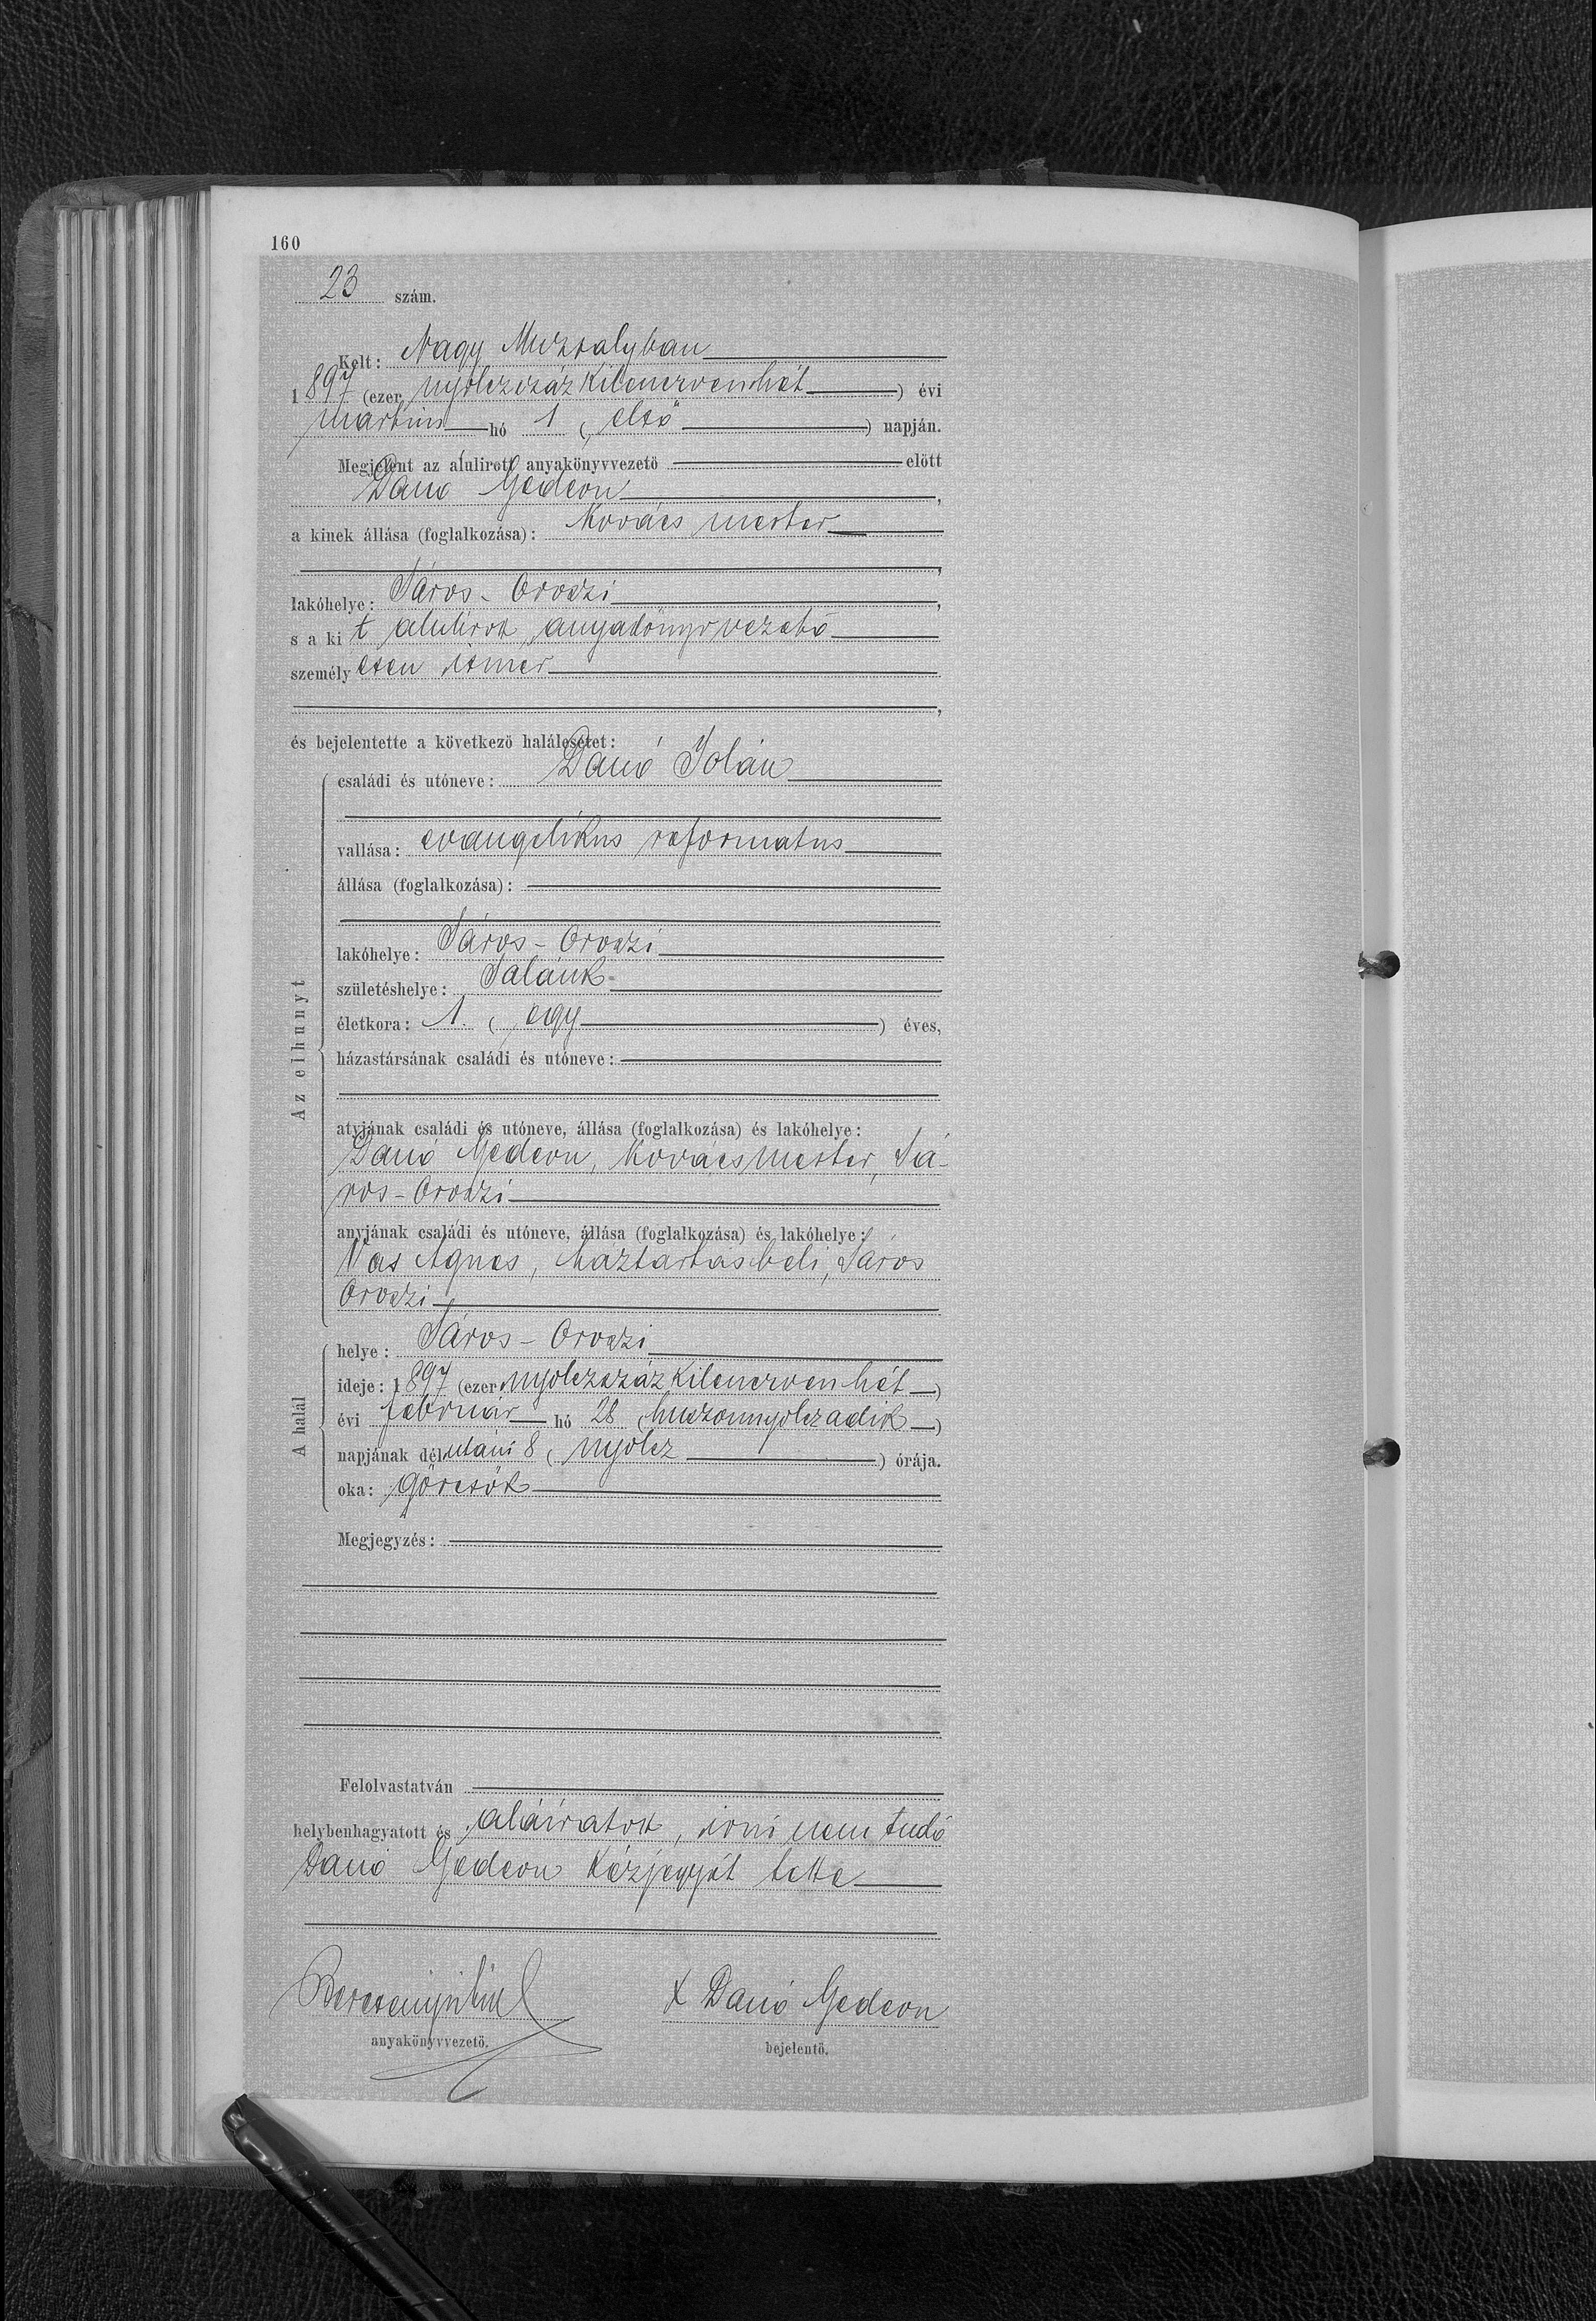 160
23 szám.
Kelt: Nagy Muzsalyban
1897 (ezer nyolczszáz kilenczvenhét) évi
martius hó 1 (első) napján.
Megjelent az alulirott anyakönyvvezető előtt
Danó Gedeon,
a kinek állása (foglalkozása): Kovács mester
,
lakóhelye: Sáros-Oroszi,
s a kit alulirott anyakönyvvezető
személyesen ismer
,
és bejelentette a következő halálesetet:
Az elhunyt
családi és utóneve: Danó Jolán
vallása: evangelikus reformatus
állása (foglalkozása):
lakóhelye: Sáros-Oroszi
születéshelye: Salánk
életkora: 1. (egy) éves,
házastársának családi és utóneve:
atyjának családi és utóneve, állása (foglalkozása) és lakóhelye:
Danó Gedeon, Kovácsmester, Sá-
ros-Oroszi
anyjának családi és utóneve, állása (foglalkozása) és lakóhelye:
Vas Ágnes, háztartásbeli, Sáros
Oroszi
A halál
helye: Sáros-Oroszi
ideje: 1897 (ezer nyolczszáz kilenczvenhét)
évi február hó 28 (huszonnyolczadik)
napjának délutáni 8 (nyolcz) órája.
oka: görcsök
Megjegyzés:
Felolvastatván
helybenhagyatott és aláiratott, irni nem tudó
Danó Gedeon kézjegyét tette
X Danó Gedeon
anyakönyvvezető. bejelentő.